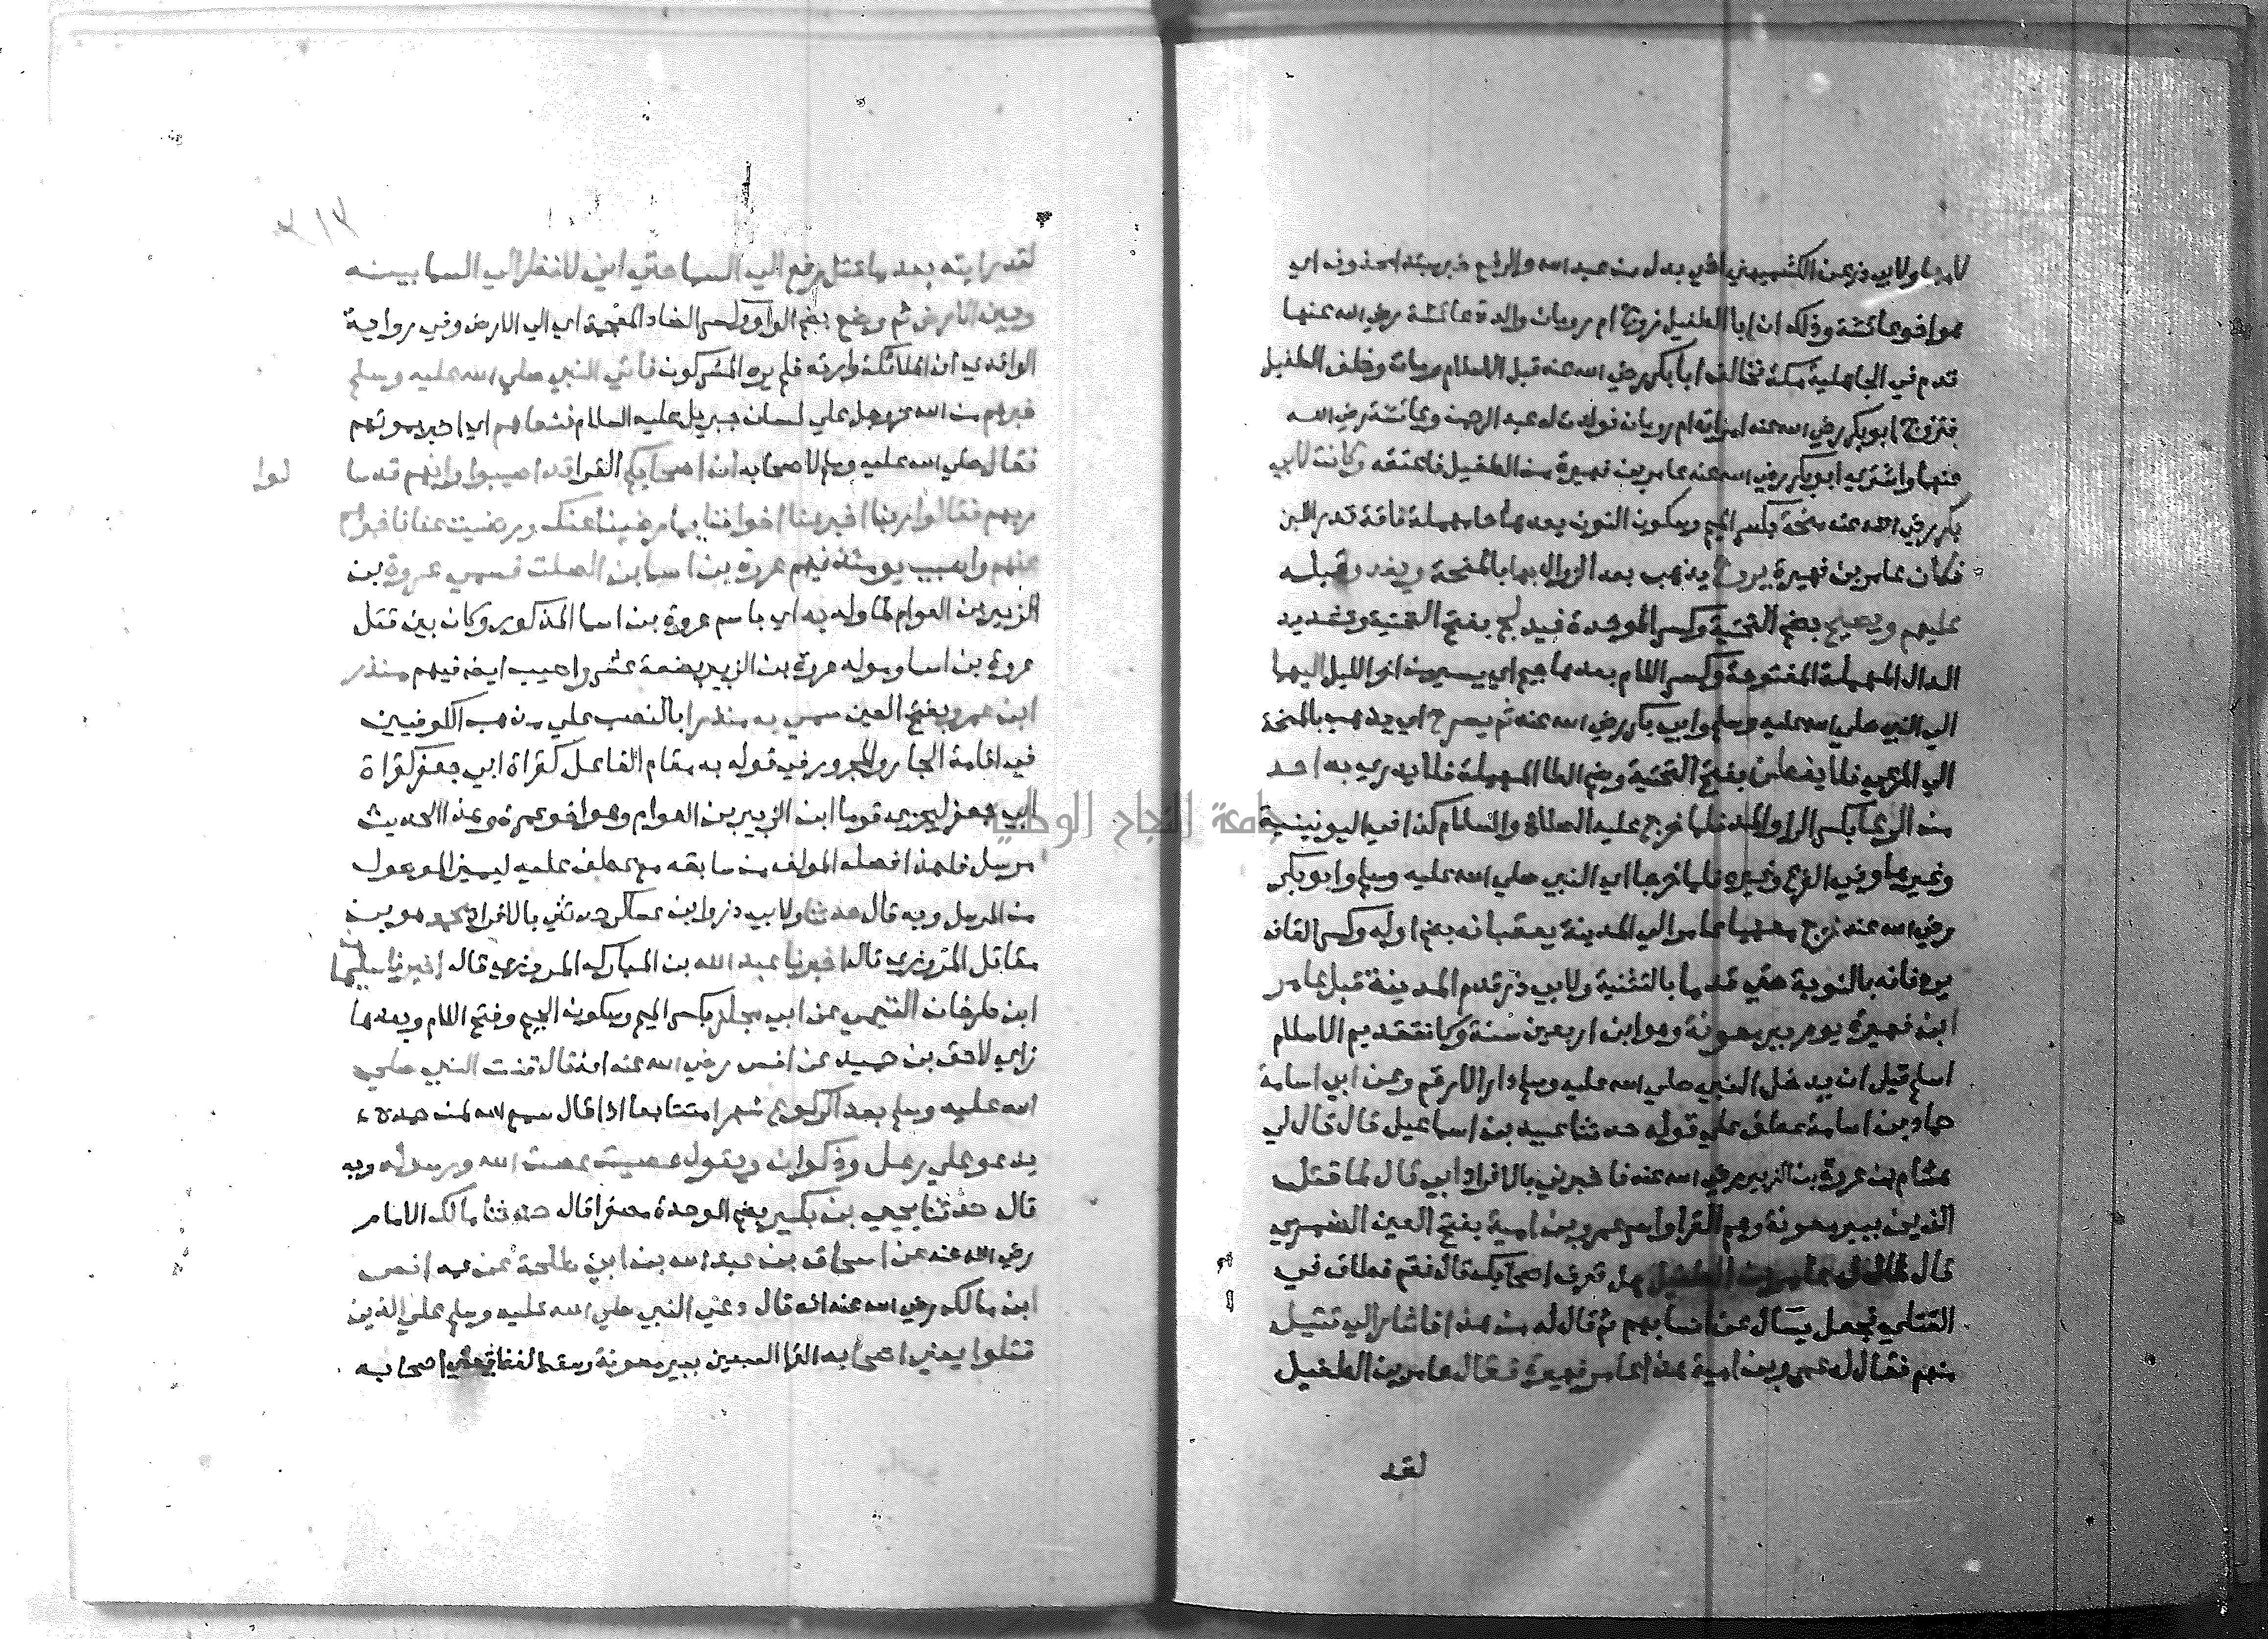 لامها ولابي ذر عن الكشميهني اخي بدل من عبد الله والرفع خبر مبتدا محذوف اي
هو اخو عائشة وذلك ان ابا الطفيل زوج ام رومان والدة عائشة رضي الله عنها
قدم في الجاهلية مكة فحالف ابا بكر رضي الله عنه قبل الاسلام ومات وخلف الطفيل
فتزوج ابو بكر رضي الله عنه امراته ام رومان فولدت له عبد الرحمن وعائشة رضي الله
عنهما واشتري ابو بكر رضي الله عنه عامر بن فهيرة من الطفيل فاعتقه وكانت لابي
بكر رضي الله عنه منحة بكسر الميم وسكون النون بعدها حا مهملة ناقة تدر اللبن
فكان عامر بن فهيرة يروح يذهب بعد الزوال بها بالمنحة ويغدو قبله
عليهم ويصبح بضم التحتية وكسر الموحدة فيدلج بفتح التحتية وتشديد
الدال المهملة المفتوحة وكسر اللام بعدها جيم اي يسير من اخر الليل اليهما
الي النبي صلي الله عليه وسلم وابي بكر رضي الله عنه ثم يسرح اي يذهب بالمنحة
الي المرعي فلا يفطن بفتح التحتية وضم الطا المهملة فلا يدري به احد
من الرعا بكسر الرا والمد فلما خرج عليه الصلاة والسلام كذا في اليونينية
وغيرها وفي الفرع وغيره فلما خرجا اي النبي صلي الله عليه وسلم وابو بكر
رضي الله عنه خرج معهما عامر الي المدينة يعقبانه بضم اوله وكسر القاف
يردفانه بالنوبة حتي قدما بالتثنية ولابي ذر قدم المدينة فقتل عامر
ابن فهيرة يوم بير معونة وهو ابن اربعين سنة وكان قديم الاسلام
اسلم قبل ان يدخل النبي صلي الله عليه وسلم دار الارقم وعن ابي اسامة
حماد بن اسامة عطف علي قوله حدثنا عبيد بن اسماعيل قال قال لي
هشام بن عروة بن الزبير رضي الله عنه فاخبرني بالافراد ابي قال لما قتل
الذين ببير معونة وهم القرا واسر عمرو بن امية بفتح العين الضمري
قال عامر بن الطفيل هل تعرف اصحابك قال نعم فطاف في
القتلي فجعل يسال عن انسابهم ثم قال له من هذا فاشار الي قتيل
منهم فقال له عمرو بن امية هذا عامر بن فهيرة فقال عامر بن الطفيل
لقد
٢١٣
لقد رايته بعد ما قتل رفع الي السما حتي اني لانظر الي السما بينه
وبين الارض ثم وضع بضم الواو وكسر الضاد المعجمة اي الي الارض وفي رواية
الواقدي ان الملائكة وارته فلم يره المشركون فاتي النبي صلي الله عليه وسلم
خبرهم من الله عز وجل علي لسان جبريل عليه السلام فنعاهم اي اخبر بموتهم
فقال صلي الله عليه وسلم لاصحابه ان اصحابكم القرا قد اصيبوا وانهم قد سا
لوا
ربهم فقالوا ربنا اخبر عنا اخواننا بما رضينا عنك ورضيت عنا فاخبرهم
عنهم واصيب يومئذ فيهم عروة بن اسما بن الصلت فسمي عروة بن
الزبير بن العوام لما ولد به اي باسم عروة بن اسما المذكور وكان بين قتل
عروة بن اسما ومولد عروة بن الزبير بضعة عشر واصيب ايضا فيهم منذر
ابن عمرو بفتح العين سمي به منذرا بالنصب علي مذهب الكوفيين
في اقامة الجار والمجرور في قوله به مقام الفاعل كقراة ابي جعفر كقراة
ابي جعفر ليجزي قوما ابن الزبير بن العوام وهو اخو عروة وهذا الحديث
مرسل فلهذا فصله المولف من سابقه مع عطفه عليه ليميز الموصول
من المرسل وبه قال حدثنا ولابي ذر وابن عساكر حدثني بالافراد محمد هو بن
مقاتل المروزي قال اخبرنا عبد الله بن المبارك المروزي قال اخبرنا سليمان
ابن طرخان التيمي عن ابي مجلز بكسر الميم وسكون الجيم وفتح اللام وبعدها
زاي لاحق بن حميد عن انس رضي الله عنه انه قال قنت النبي صلي
الله عليه وسلم بعد الركوع شهرا متتابعا اذا قال سمع الله لمن حمده
يدعو علي رعل وذكوان ويقول عصية عصت الله ورسوله وبه
قال حدثنا يحيي بن بكير بضم الموحدة مصغرا قال حدثنا مالك الامام
رضي الله عنه عن اسحاق بن عبد الله بن ابي طلحة عن عمه انس
ابن مالك رضي الله عنه انه قال دعي النبي صلي الله عليه وسلم علي الذين
قتلوا يعني اصحابه القرا السبعين ببير معونة وسقط لفظ يعني اصحابه
جامعة النجاح الوطنية